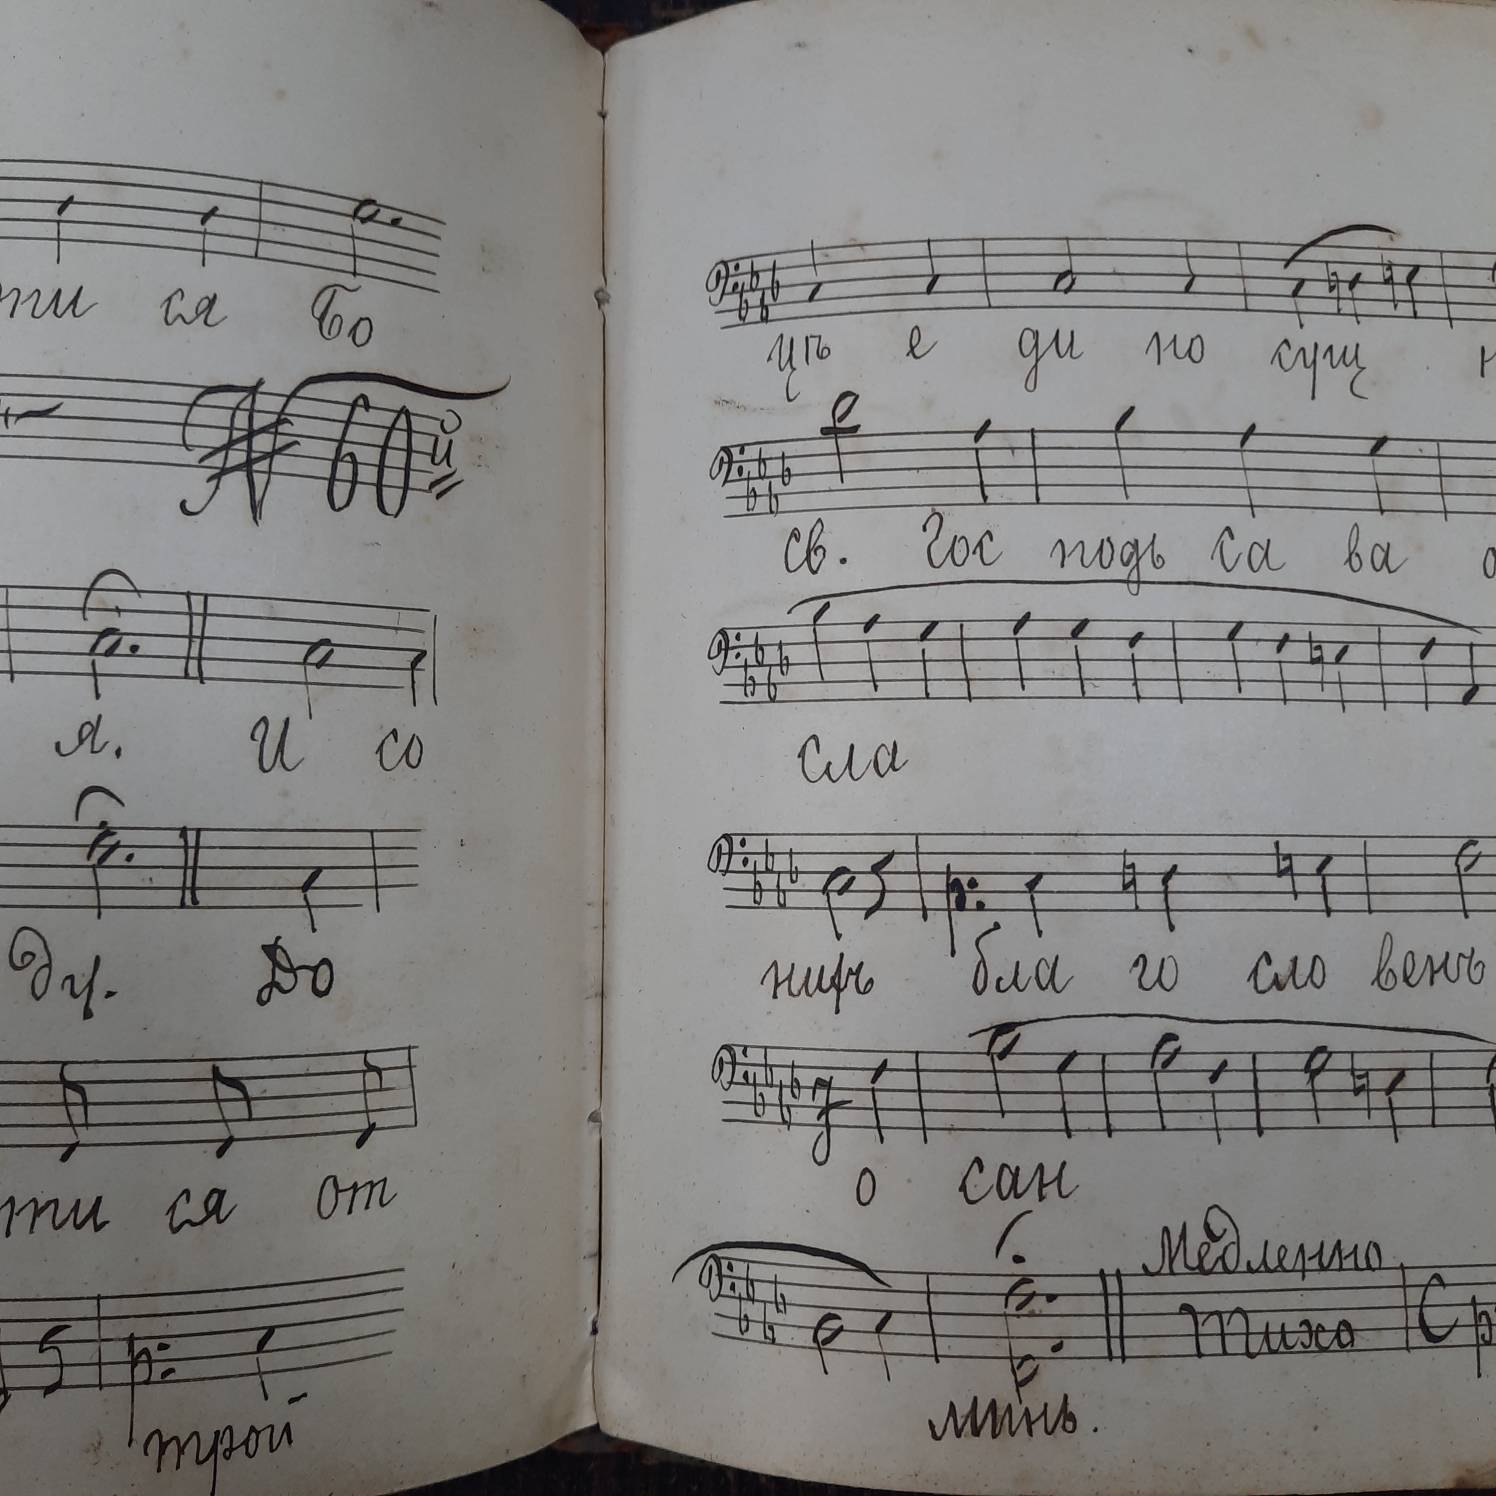 ти ся Бо
№ 60й
я. И со
ду. До
ти ся от
трой
цѣ е ди но сущ н
св. Гос подь са ва о
сла
ний бла го сло венъ
о сан
минь.
Медленно
Тихо